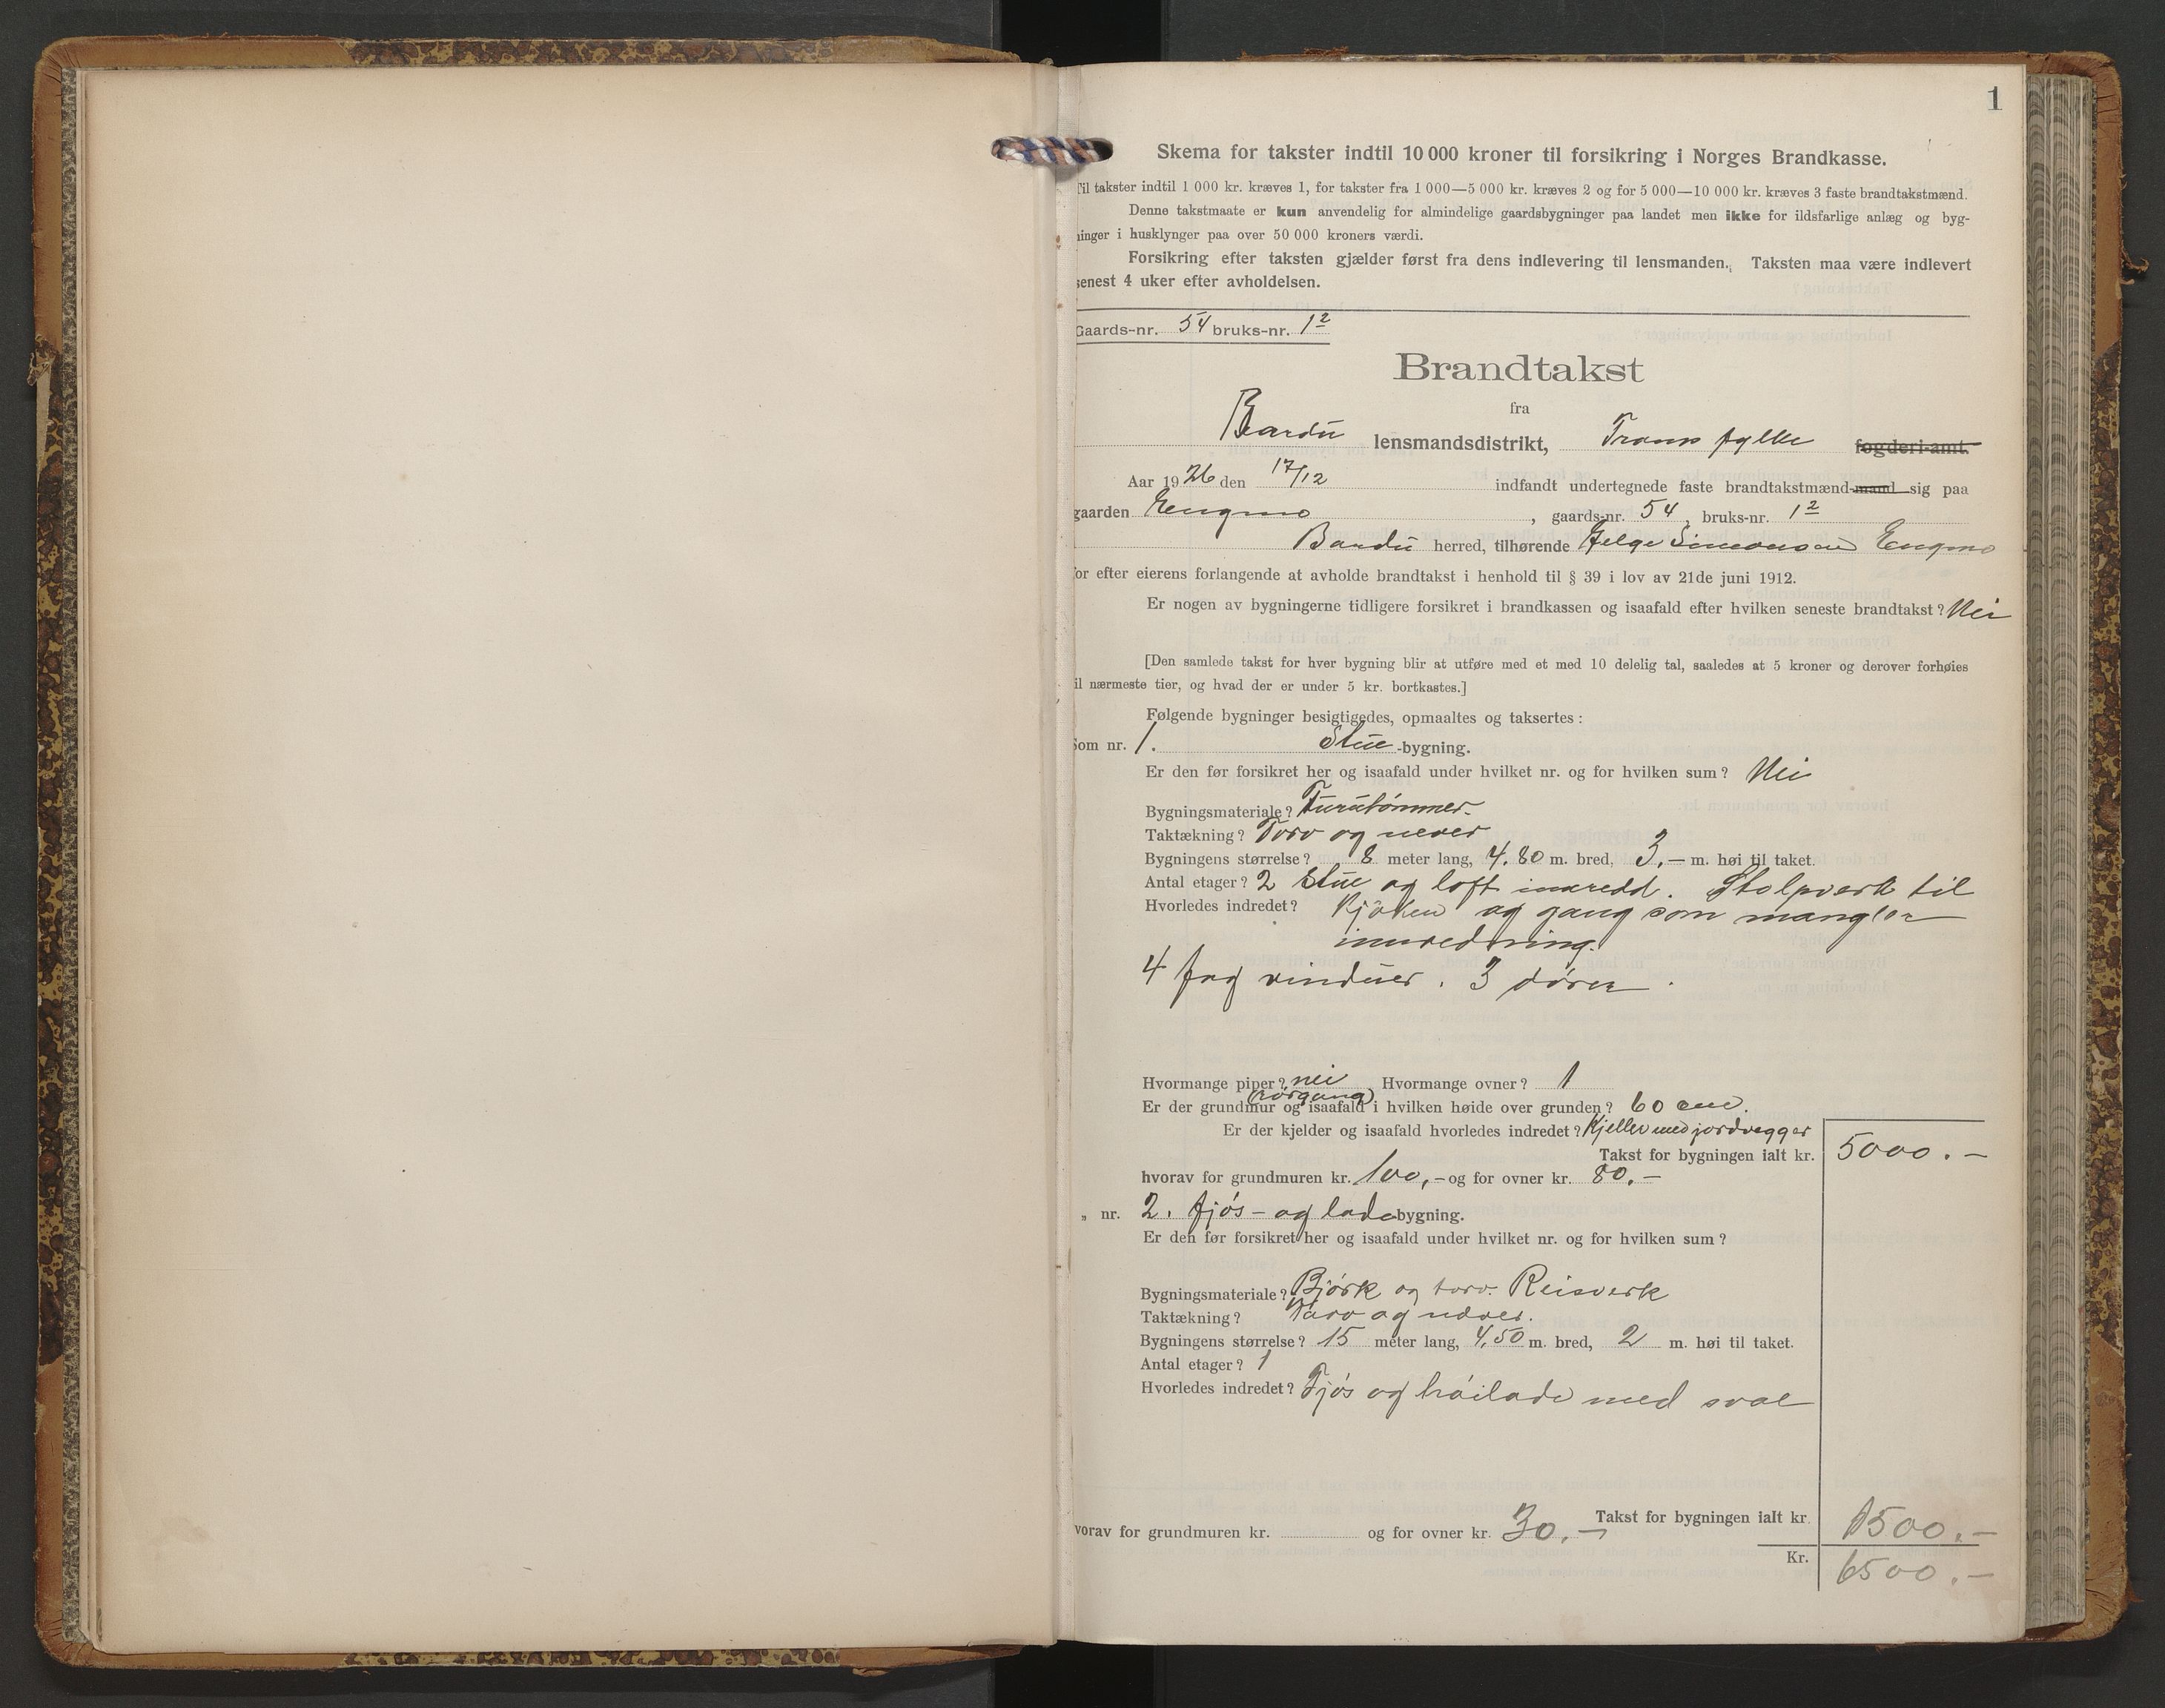 1
Skema for takster indtil 10 000 kroner til forsikring i Norges Brandkasse.
Til takster indtil 1 000 kr. kræves 1, for takster fra 1 000—5 000 kr. kræves 2 og for 5 000—10 000 kr. kræves 3 faste brandtakstmænd.
Denne takstmaate er kun anvendelig for almindelige gaardsbygninger paa landet men ikke for ildsfarlige anlæg og byg-
ninger i husklynger paa over 50 000 kroners værdi.
Forsikring efter taksten gjælder først fra dens indlevering til lensmanden. Taksten maa være indlevert
senest 4 uker efter avholdelsen.
Gaards-nr. 54 bruks-nr. 12
Brandtakst
fra
Bardu lensmandsdistrikt, Troms fylke fogderi-amt.
Aar 1926 den 17/12 indfandt undertegnede faste brandtakstmænd-mand sig paa
gaarden Engmo, gaards-nr. 54, bruks-nr. 12
Bardu herred, tilhørende Helge Simonsen Engmo
for efter eierens forlangende at avholde brandtakst i henhold til § 39 i lov av 21de juni 1912.
Er nogen av bygningerne tidligere forsikret i brandkassen og isaafald efter hvilken seneste brandtakst? Nei
[Den samlede takst for hver bygning blir at utføre med et med 10 delelig tal, saaledes at 5 kroner og derover forhøies
til nærmeste tier, og hvad der er under 5 kr. bortkastes.]
Følgende bygninger besigtigedes, opmaaltes og taksertes:
Som nr. 1. Stue-bygning.
Er den før forsikret her og isaafald under hvilket nr. og for hvilken sum? Nei
Bygningsmateriale? Furutømmer.
Taktækning? Torv og never
Bygningens størrelse? 8 meter lang, 4.80 m. bred, 3.— m. høi til taket.
Antal etager? 2 Stue og loft innredd. Stolpverk til
Hvorledes indredet? Kjøken og gang som mangler
innredning.
4 fag vinduer. 3 dører.
Hvormange piper? nei Hvormange ovner? 1
(rørgang)
Er der grundmur og isaafald i hvilken høide over grunden? 60 cm.
Er der kjelder og isaafald hvorledes indredet? Kjeller med jordvegger
Takst for bygningen ialt kr. 5000.—
hvorav for grundmuren kr. 100,- og for ovner kr. 80.—
„ nr. 2. fjøs- og lade bygning.
Er den før forsikret her og isaafald under hvilket nr. og for hvilken sum?
Bygningsmateriale? Bjørk og torv. Reisverk
Taktækning? Torv og never.
Bygningens størrelse? 15 meter lang, 4.50 m. bred, 2 m. høi til taket.
Antal etager? 1
Hvorledes indredet? Fjøs og høilade med sval
Takst for bygningen ialt kr. 1500.—
hvorav for grundmuren kr. og for ovner kr. 30.—
Kr. 6500.—